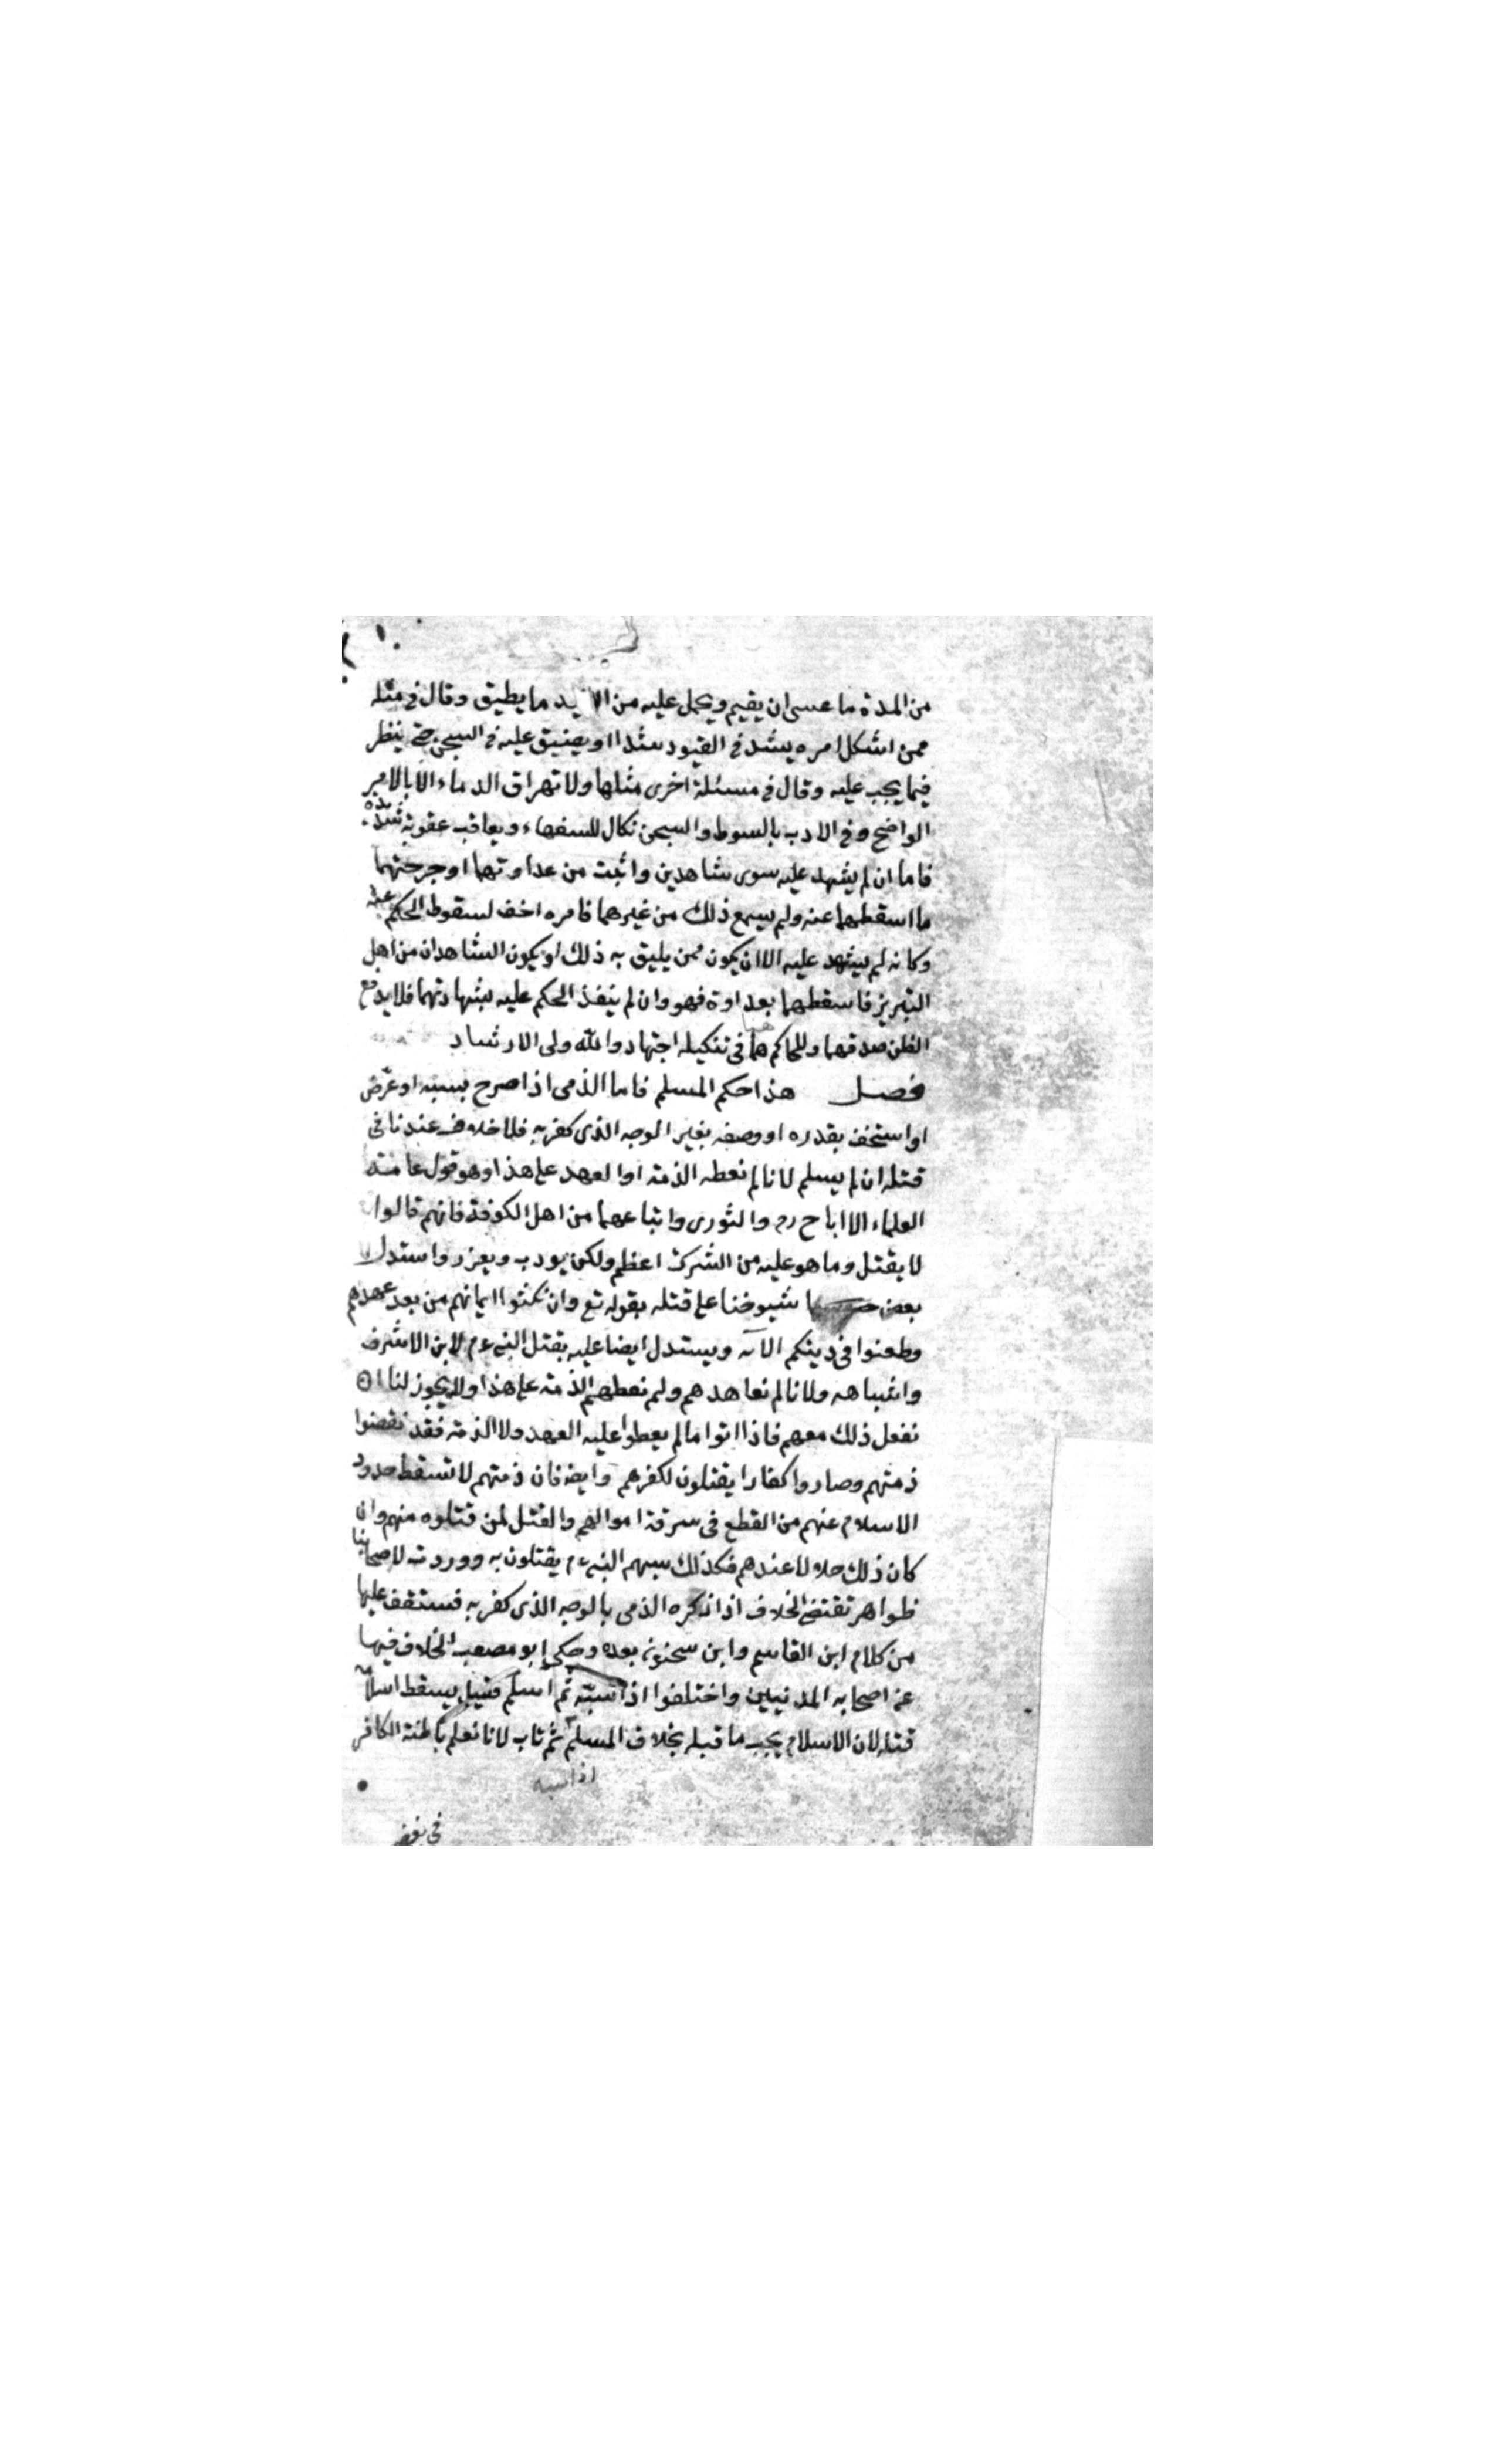 من المدة ما عسى ان يقيم ويحمل عليه من ما يطيق وقال في مثله
ممن اشكل امره يشد في القيود شدا او يضيق عليه في السجن حتى ينظر
فيما يجب عليه وقال في مسئلة اخرى مثلها ولا تهراق الدماء الا بالامر
الواضح وفي الادب بالسوط والسجن نكال للسفهاء ويعاقب عقوبة شديدة
فاما ان لم يشهد عليه سوى شاهدين واثبت من عداوتهما او جرحتهما
ما اسقطهما عنه ولم يسمع ذلك من غيرهما فامره اخف لسقوط الحكم عنه
وكانه لم يشهد عليه الا ان يكون ممن يليق به ذلك او يكون الشاهدان من اهل
التبريز فاسقطهما بعداوة فهو وان لم ينفذ الحكم عليه بشهادتهما فلا يدفع
الظن صدقهما وللحاكم هنا في تنكيله اجتهاد والله ولى الارشاد
فصل هذا حكم المسلم فاما الذمى اذا صرح بسبه او عرّض
او استخف بقدره او وصفه بغير الوجه الذى كفر به فلا خلاف عندنا فى
قتله ان لم يسلم لانا لم نعطه الذمة او العهد على هذا وهو قول عامة
العلماء الا اباح ره والثورى واتباعهما من اهل الكوفة فانهم قالوا
لا يقتل وما هو عليه من الشرك اعظم ولكن يودب ويعزر واستدل
بعض شيوخنا على قتله بقوله تع وان نكثوا ايمانهم من بعد عهدهم
وطعنوا فى دينكم الآية ويستدل ايضا عليه بقتل النبى ءم لابن الاشرف
واشباهه ولانا لم نعاهدهم ولم نعطهم الذمة على هذا ولا يجوز لنا ان
نفعل ذلك معهم فاذا اتوا ما لم يعطوا عليه العهد ولا الذمة فقد نقضوا
ذمتهم وصاروا كفارا يقتلون لكفرهم وايضه فان ذمتهم لا تسقط حدود
الاسلام عنهم من القطع فى سرقة اموالهم والقتل لمن قتلوه منهم وان
كان ذلك حلالا عندهم فكذلك سبهم النبى ءم يقتلون به ووردت لاصحابنا
ظواهر تقتضى الخلاف اذا ذكره الذمى بالوجه الذى كفر به فستقف عليها
من كلام ابن القاسم وابن سحنون بعده وحكى ابو مصعب الخلاف فيها
عن اصحابه المدنيين واختلفوا اذا سبّه ثم اسلم فقيل يسقط اسلامه
قتله لان الاسلام يجب ما قبله بخلاف المسلم ثم تاب لانا نعلم باطنة الكافر
اذا سبه
فى بغضه